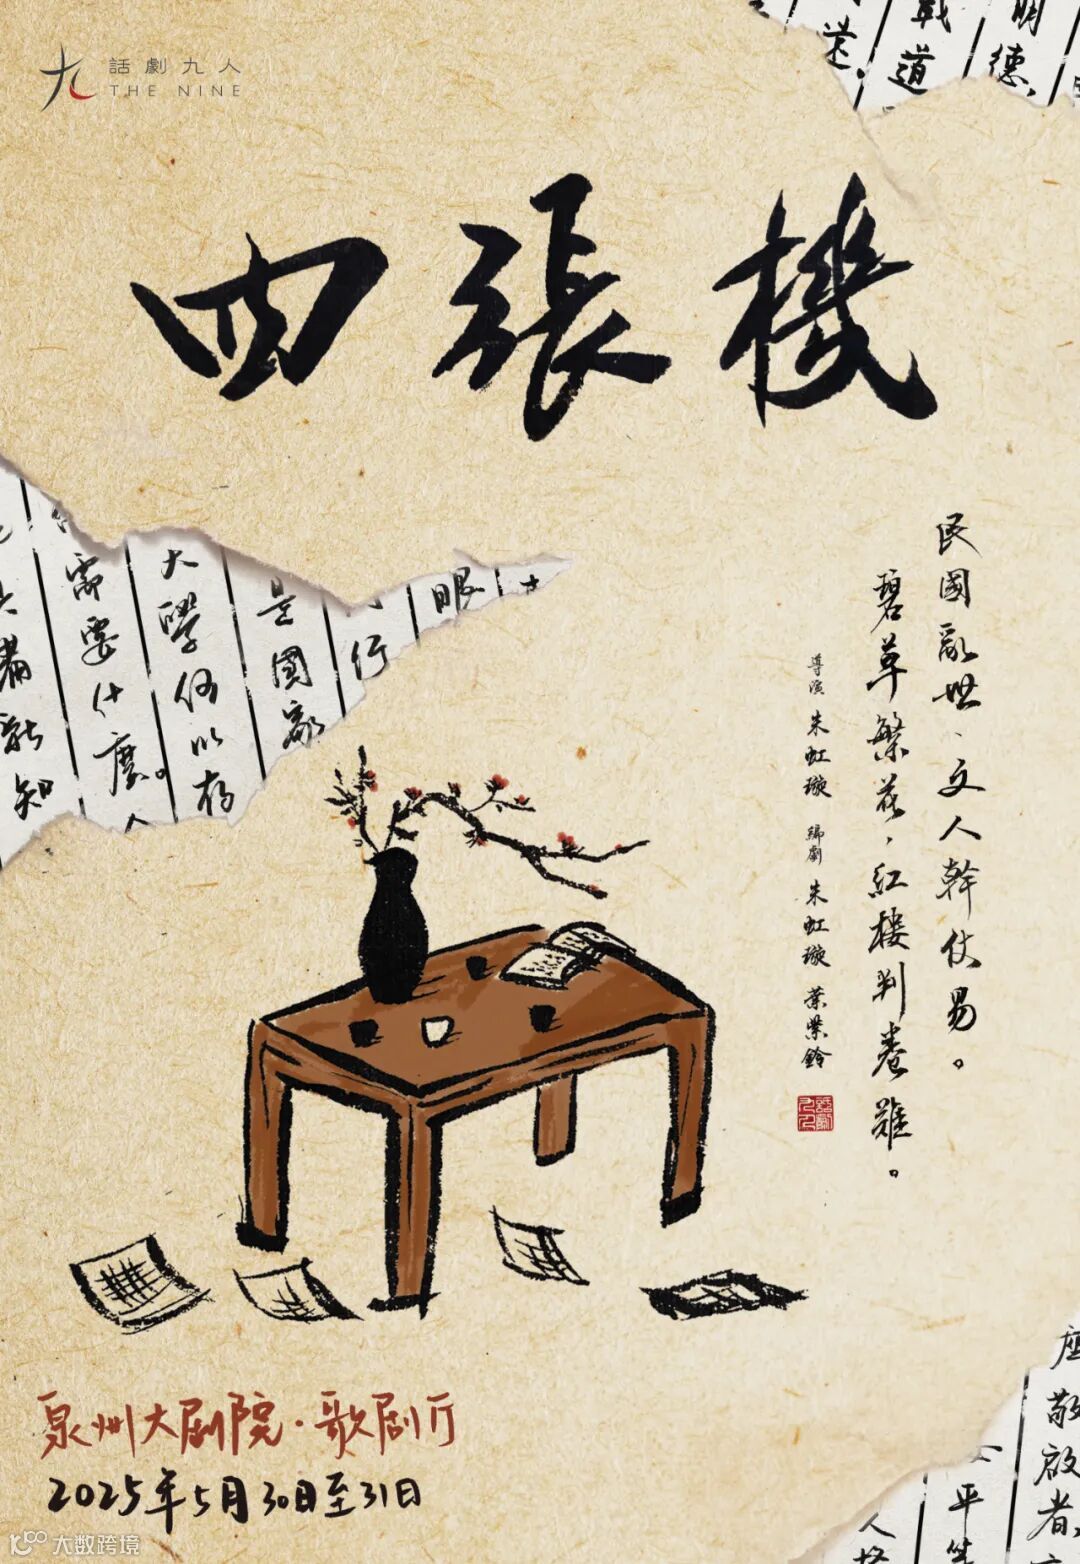 話劇九人
THE NINE
四張機
民國亂世、文人幹仗易。
碧草繁花，紅樓判卷難。
導演 朱虹璇 編劇 朱虹璇 葉紫鈴
話劇九人
明德
戰道
眼
行
是國家
大學何以存
需要什麼。人
新知
座敬啟者
平
泉州大剧院·歌剧厅
2025年5月30日至31日
大数跨境